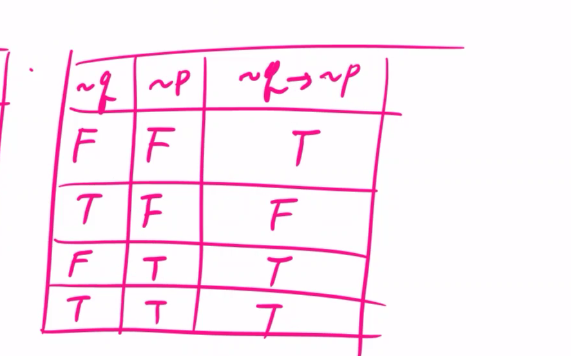 ~q ~p ~q→~p
F F T
T F F
F T T
T T T